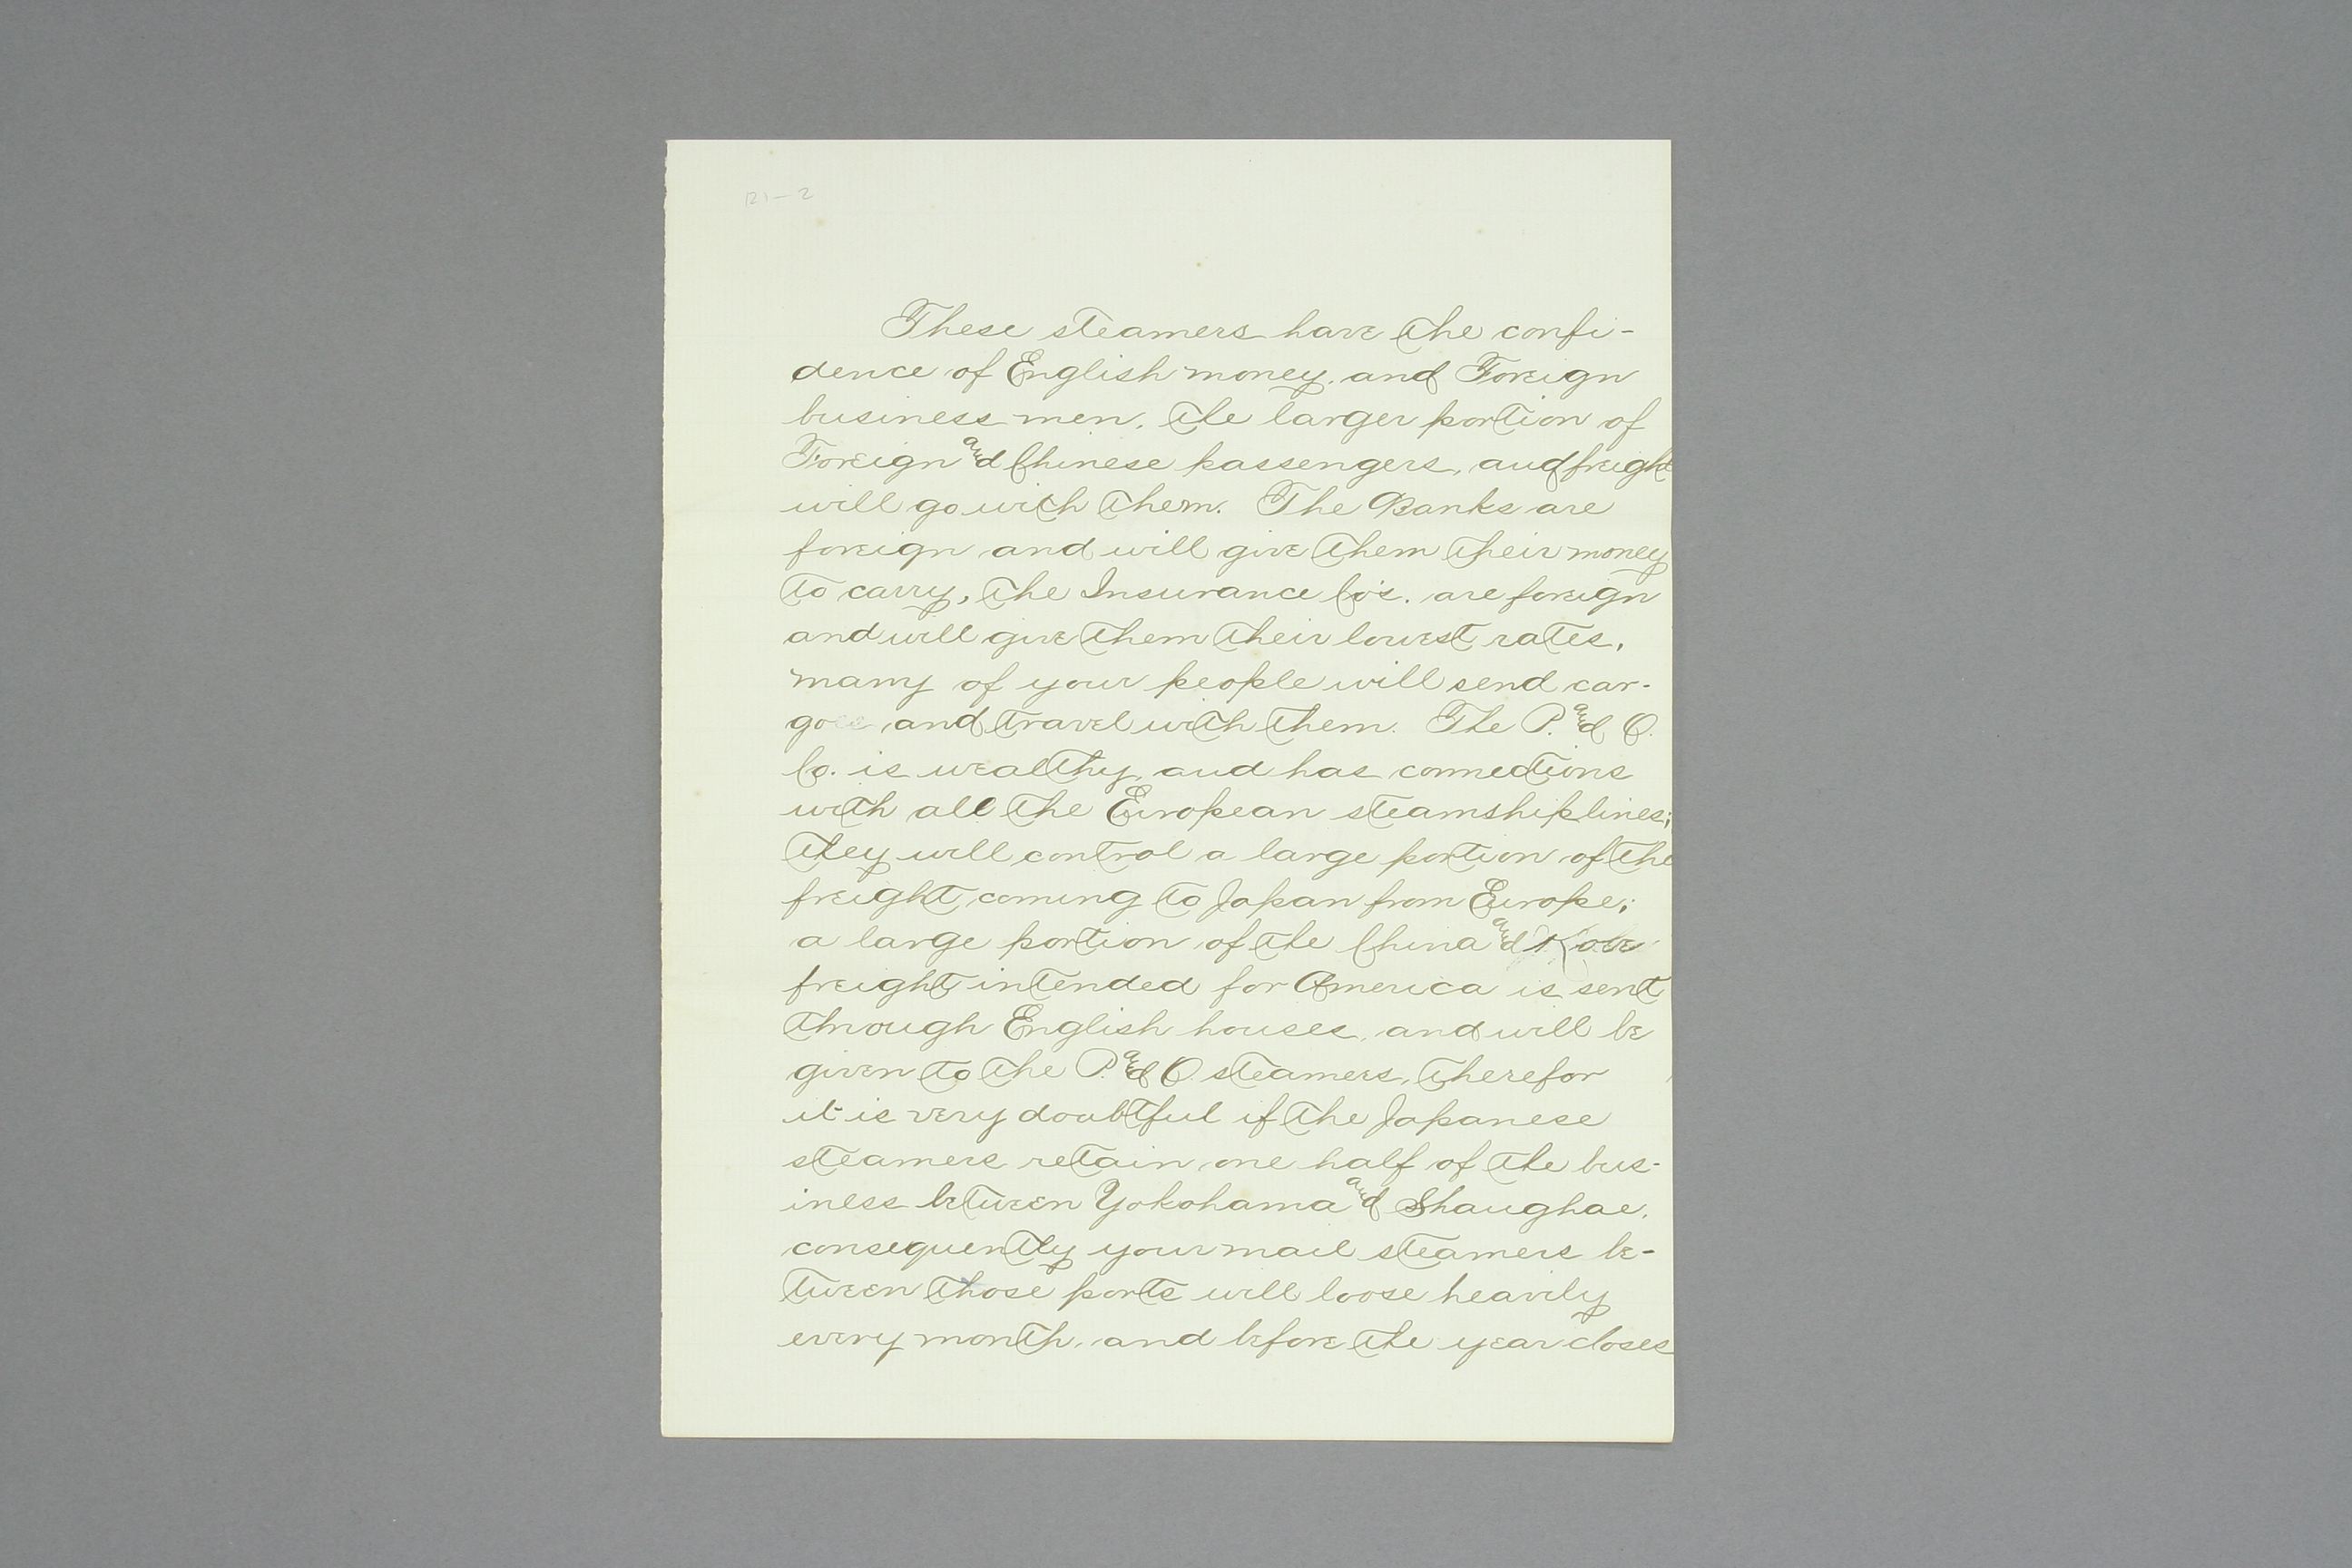 121-2
These steamers have the confi-
dence of English money, and Foreign
business men, the larger portion of
Foreign and Chinese passengers, and freight
will go with them. The Banks are
foreign and will give them their money
to carry, the Insurance Co's. are foreign
and will give them their lowest rates,
many of your people will send car-
go and travel with them. The P. and O.
Co. is wealthy and has connections
with all the European steamship lines;
they will control a large portion of the
freight coming to Japan from Europe;
a large portion of the China and Kobe
freight intended for America is sent
through English houses, and will be
given to the P. and O. steamers, therefor
it is very doubtful if the Japanese
steamers retain one half of the bus-
iness between Yokohama and Shanghae,
consequently your mail steamers be-
tween those ports will loose heavily
every month, and before the year closes